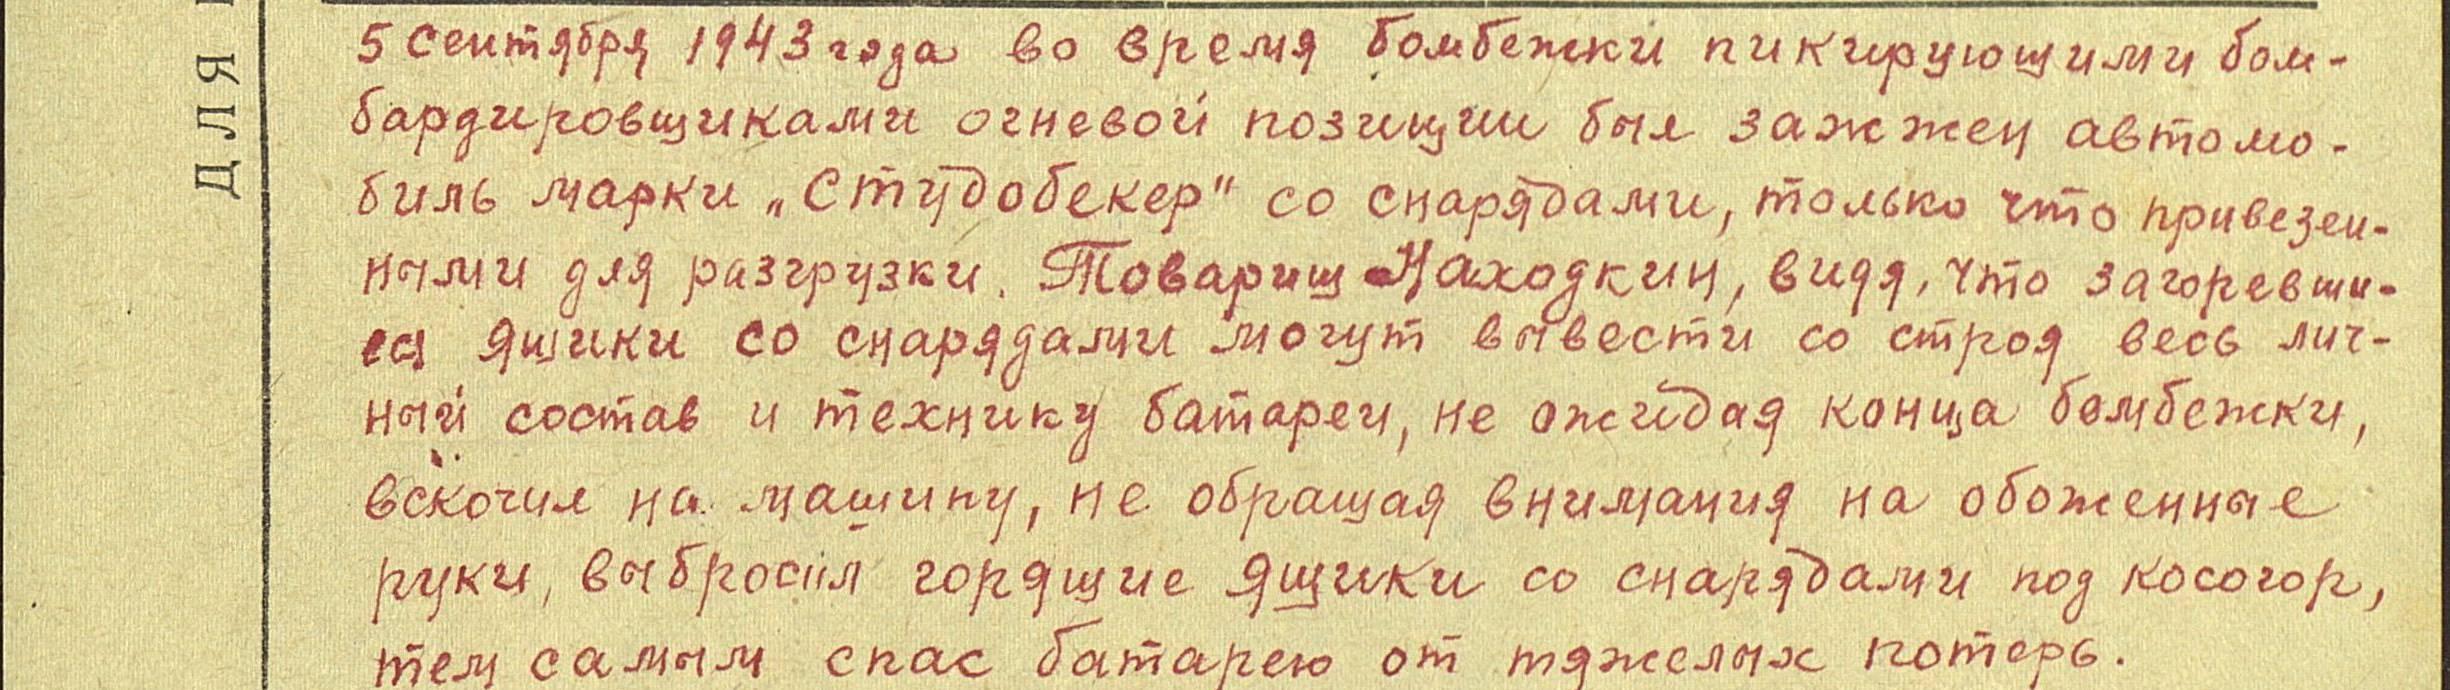 ДЛЯ
5 сентября 1943 года во время бомбежки пикирующими бом-
бардировщиками огневой позиции был зажжен автомо-
биль марки „Студобекер" со снарядами, только что привезен-
ными для разгрузки. Товарищ Находкин, видя, что загоревши-
еся ящики со снарядами могут вывести со строя весь лич-
ный состав и технику батареи, не ожидая конца бомбежки,
вскочил на машину, не обращая внимания на обоженные
руки, выбросил горящие ящики со снарядами под косогор,
тем самым спас батарею от тяжелых потерь.